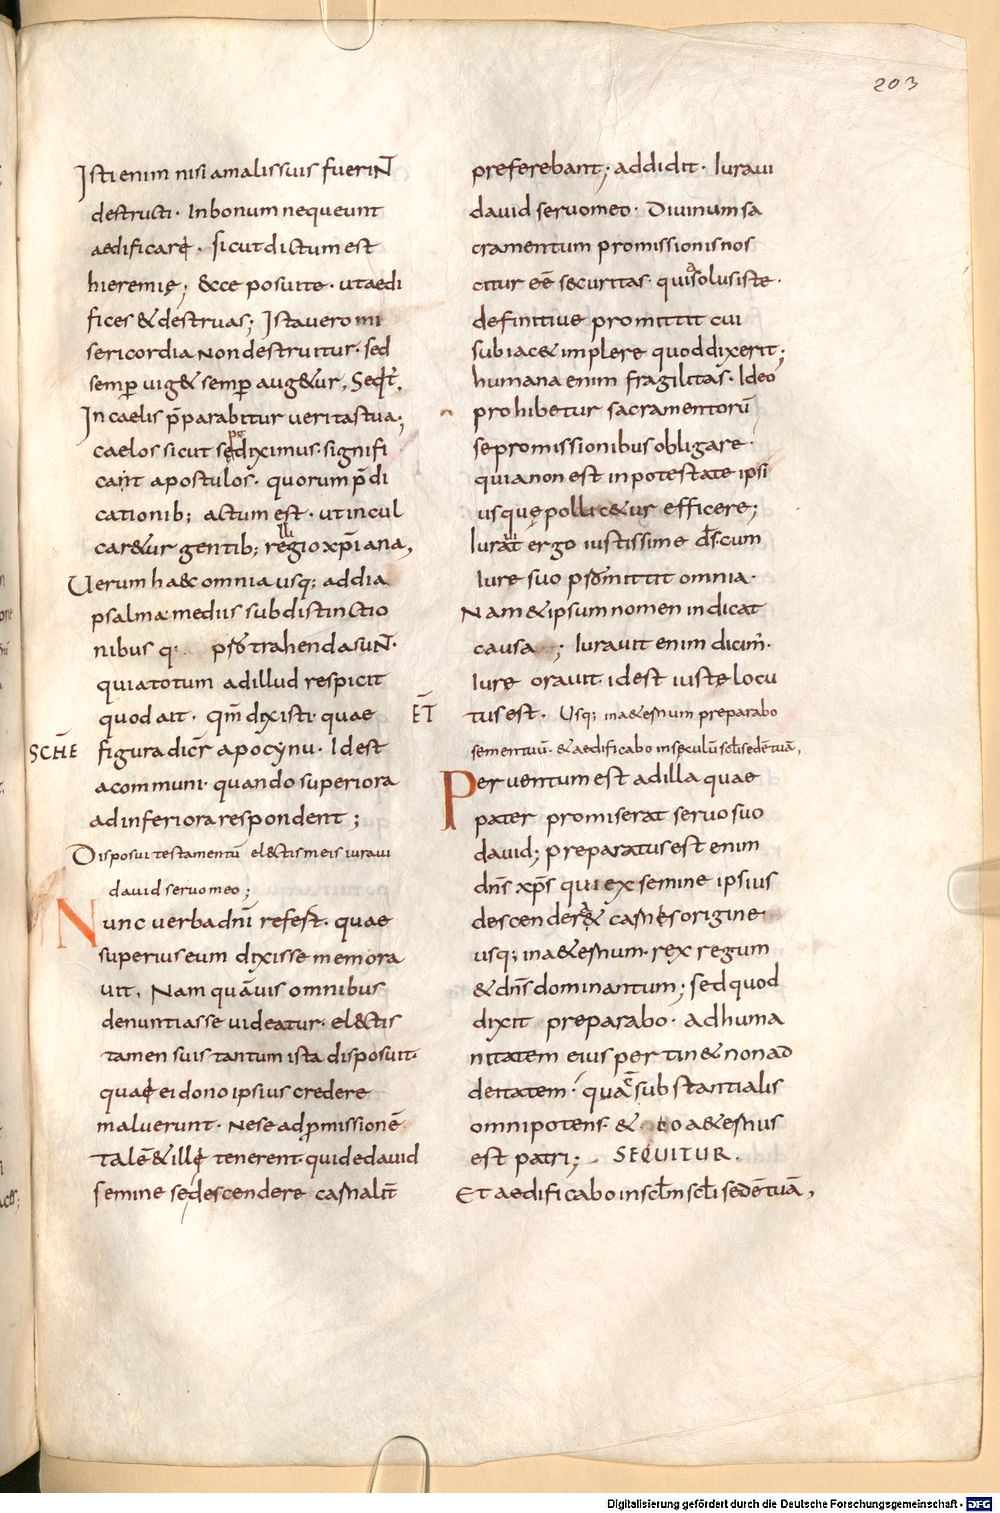 203
Isti enim nisi a malis suis fuerint
destructi· In bonum nequeunt
aedificare· sicut dictum est
hieremię; Ecce posui te· ut aedi
fices & destruas; Ista vero mi
sericordia non destruitur· sed
semp̄ vig& semp̄ aug&ur, Seqt̄.
In caelis p̄parabitur veritas tua;
caelos sicut sępe diximus· signifi
cant apostolos· quorum p̄di
cationib; actum est· ut incul
car&ur gentib; religio xp̄iana,
Verum haec omnia usq; ad dia
psalma mediis subdistinctio
nibus q· p̄trahenda sunt·
quia totum ad illud respicit
quod ait· qm̄ dixisti· quae
SCHE figura dicr̄ apo cynu· Id est
a communi· quando superiora
ad inferiora respondent;
Disposui testamentū el&ctis meis iuravi
david servo meo;
Nunc verba dn̄i refest· quae
superius eum dixisse memora
vit, Nam quāvis omnibus
denuntiasse videatur· el&ctis
tamen suis tantum ista disposuit·
quae ei dono ipsius credere
maluerunt· Ne se ad p̄missionē
talē & ille tenerent· qui de david
semine se descendere carnalit̄
preferebant; addidit· Iuravi
david servo meo· Divinum sa
cramentum promissionis nos
citur eē securitas· quia solus iste·
definitive promittit cui
subiac& implere quod dixerit;
humana enim fragilitas· Ideo
prohibetur sacramentorū
se promissionibus obligare·
quia non est in potestate ipsi
usquę pollic&ur efficere;
Iurat ergo iustissime d̄s· cum
Iure suo p̄mittit omnia·
Nam & ipsum nomen indicat
causa; Iuravit enim dicim̄·
Iure oravit id est iustę locu
ET̄ tus est· Usq; in a&ernum preparabo
semen tuū· & aedificabo in sęculū scl̄i sedē tuā,
Perventum est ad illa quae
pater promiserat servo suo
david; preparatus est enim
dn̄s xp̄s qui ex semine ipsius
descender& carnis origine·
usq; in a&ernum· rex regum
& dn̄s dominantum; sed quod
dixit preparabo· ad huma
nitatem eius pertin& non ad
deitatem· quae substantialis
omnipotens· & coa&ernus
est patri; SEQUITUR.
Et aedificabo in scl̄m scl̄i sedē tuā,
Digitalisierung gefördert durch die Deutsche Forschungsgemeinschaft - DFG